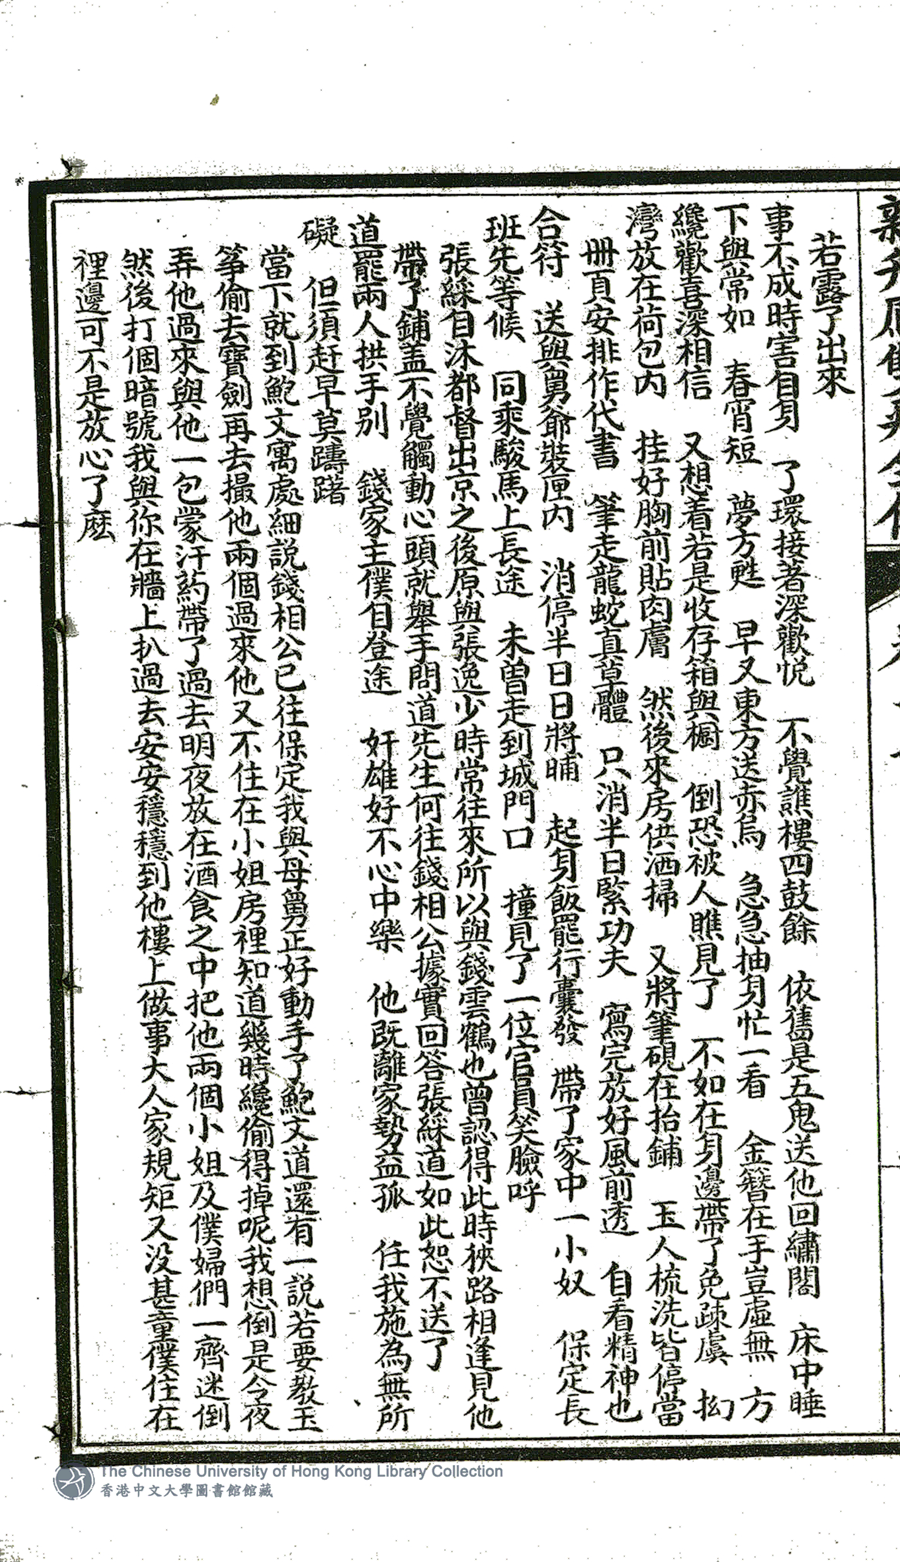 若露了出來
事不成時害自身　了環接著深歡悦　不覺譙樓四鼓餘　依舊是五鬼送他回繡閣　床中睡
下與常如　春宵短　夢方甦　早又東方送赤烏　急急抽身忙一看　金簪在手豈虛無　方
纔歡喜深相信　又想着若是收存箱與櫥　倒恐被人瞧見了　不如在身邊帶了免疎虞　拗
灣放在荷包内　挂好胸前貼肉膚　然後來房供洒掃　又將筆硯在抬鋪　玉人梳洗皆停當
冊頁安排作代書　筆走龍蛇真草體　只消半日緊功夫　寫完放好風前透　自看精神也
合符　送與舅爺裝匣内　消停半日日將晡　起身飯罷行囊發　帶了家中一小奴　保定長
班先等候　同乘駿馬上長途　未曾走到城門口　撞見了一位官員笑臉呼
張綵自沐都督出京之後原與張逸少時常往來所以與錢雲鶴也曾認得此時狹路相逢見他
帶了鋪盖不覺觸動心頭就舉手問道先生何往錢相公據實回答張綵道如此恕不送了
道罷兩人拱手别　錢家主僕自登途　奸雄好不心中樂　他既離家勢益孤　任我施為無所
礙　但須赶早莫躊躇
當下就到鮑文寓處細説錢相公已往保定我與母舅正好動手了鮑文道還有一説若要教玉
筝偷去寶劍再去攝他兩個過來他又不住在小姐房裡知道幾時纔偷得掉呢我想倒是今夜
弄他過來與他一包蒙汗葯帶了過去明夜放在酒食之中把他兩個小姐及僕婦們一齊迷倒
然後打個暗號我與你在牆上扒過去安安穩穩到他樓上做事大人家規矩又没甚童僕住在
裡邊可不是放心了麽
The Chinese University of Hong Kong Library Collection
香港中文大學圖書館館藏